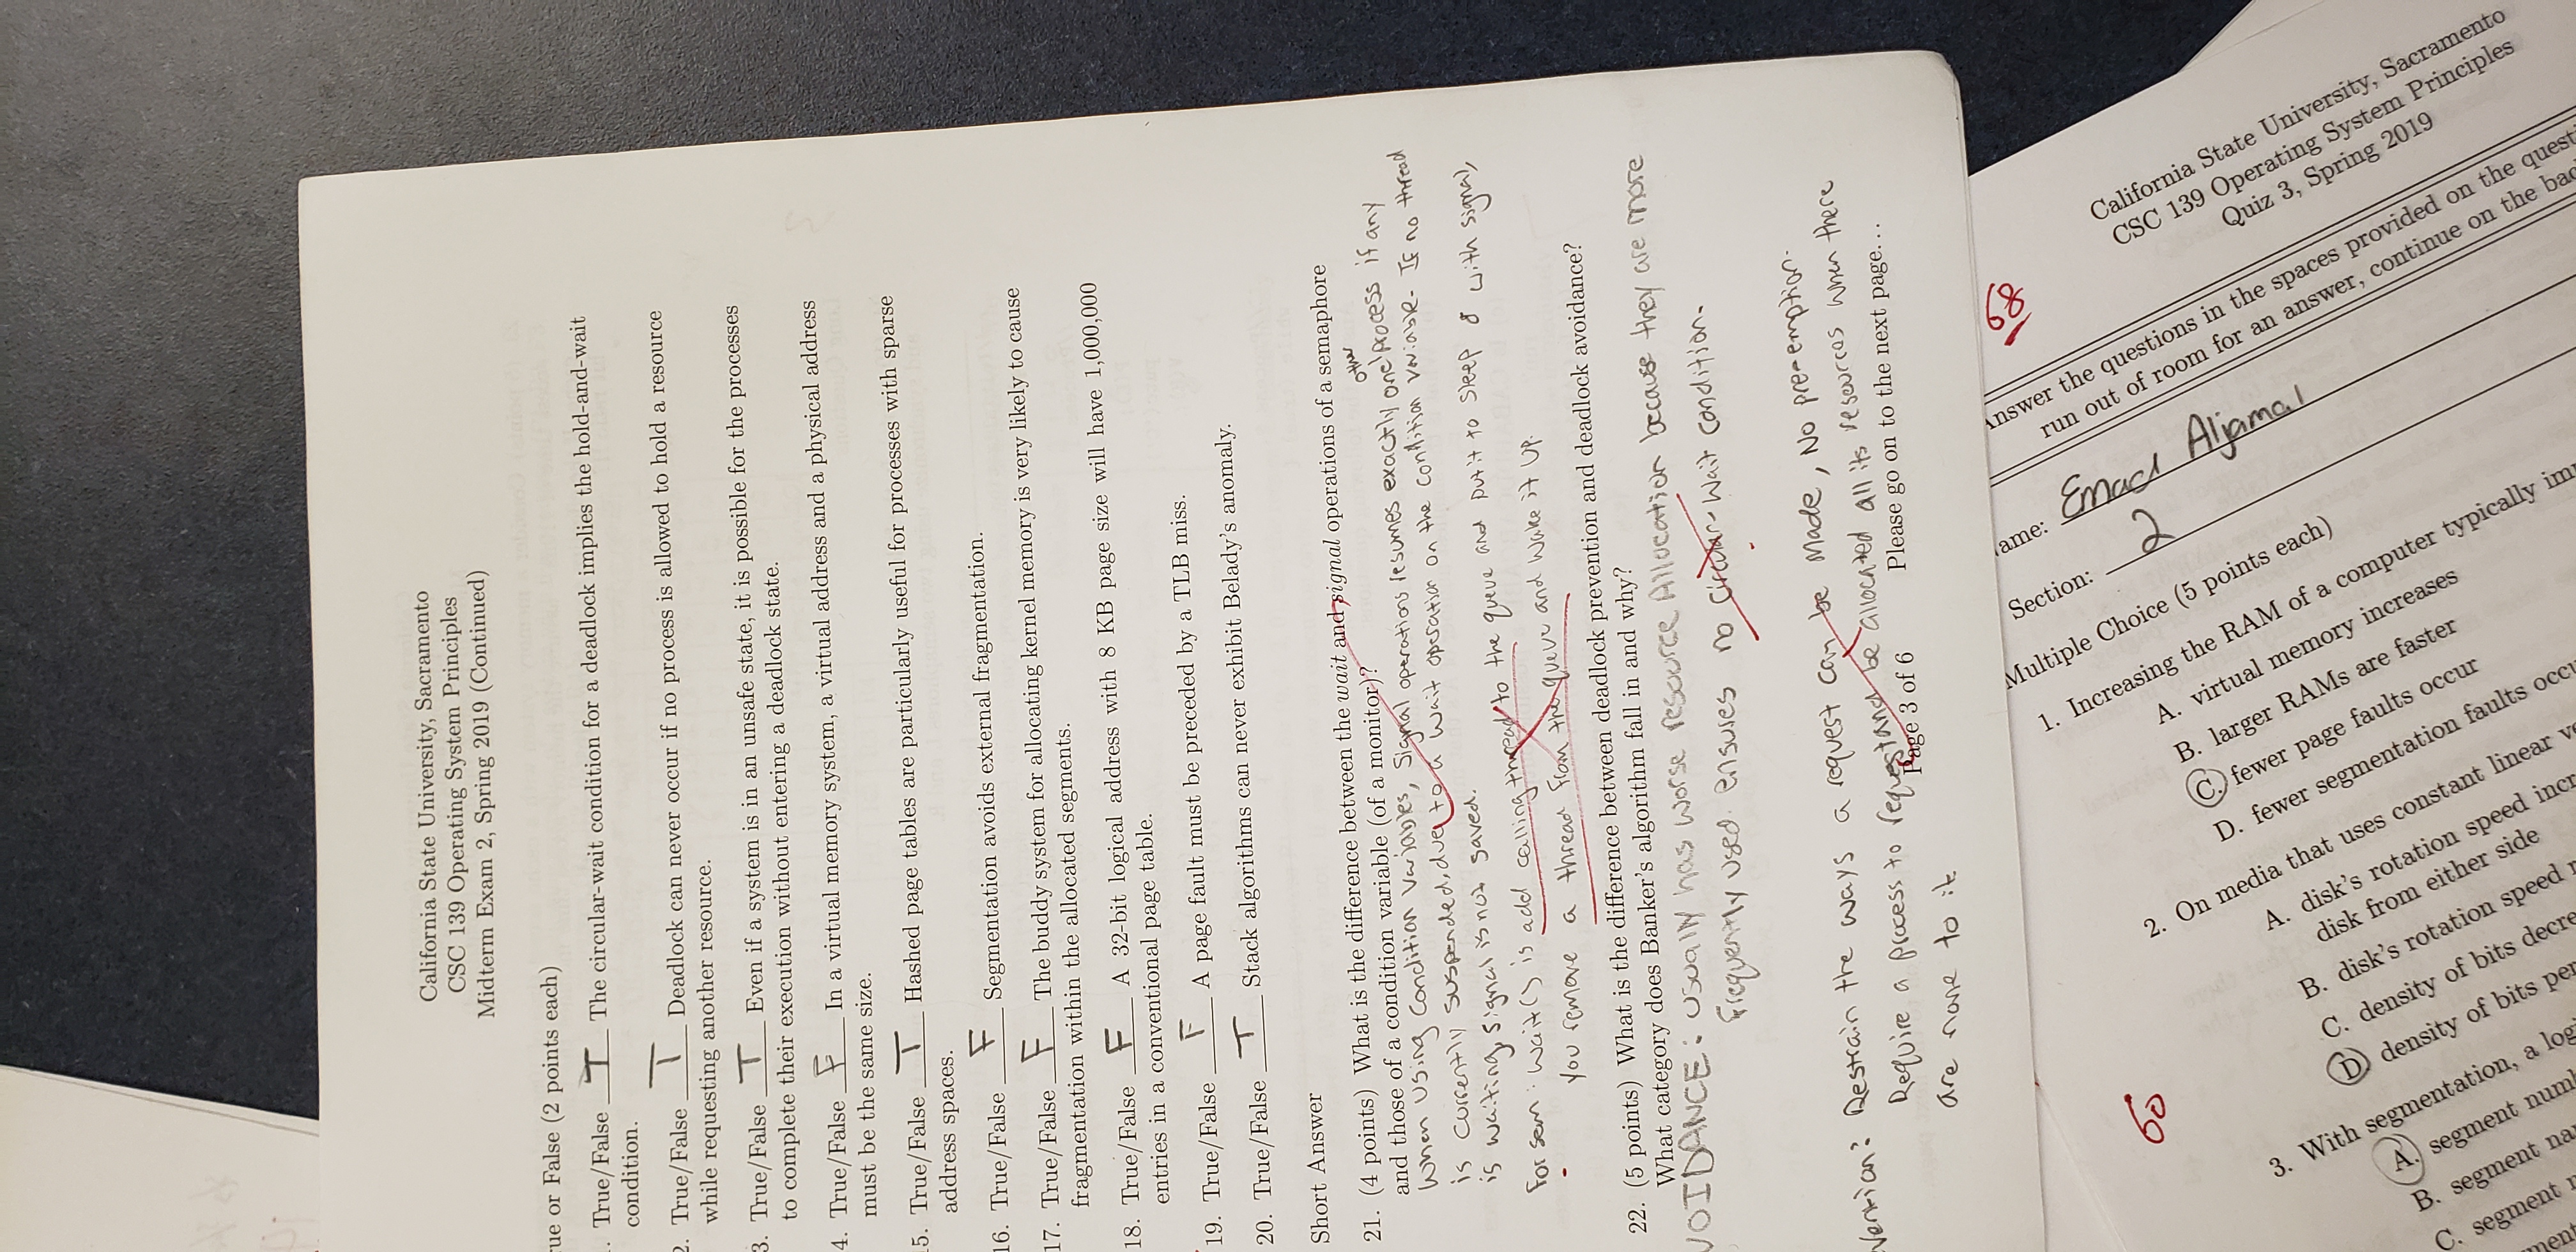 California State University, Sacramento
CSC 139 Operating System Principles
Midterm Exam 2, Spring 2019 (Continued)
rue or False (2 points each)
. True/False T The circular-wait condition for a deadlock implies the hold-and-wait
condition.
2. True/False T Deadlock can never occur if no process is allowed to hold a resource
while requesting another resource.
3. True/False T Even if a system is in an unsafe state, it is possible for the processes
to complete their execution without entering a deadlock state.
4. True/False F In a virtual memory system, a virtual address and a physical address
must be the same size.
15. True/False T Hashed page tables are particularly useful for processes with sparse
address spaces.
16. True/False F Segmentation avoids external fragmentation.
17. True/False F The buddy system for allocating kernel memory is very likely to cause
fragmentation within the allocated segments.
18. True/False F A 32-bit logical address with 8 KB page size will have 1,000,000
entries in a conventional page table.
19. True/False F A page fault must be preceded by a TLB miss.
20. True/False T Stack algorithms can never exhibit Belady's anomaly.
Short Answer
21. (4 points) What is the difference between the wait and signal operations of a semaphore
and those of a condition variable (of a monitor)?
When using condition variables, Signal operations resumes exactly one other Process if any
is currently suspended, due to a wait operation on the condition variable. If no thread
is waiting, signal is not saved.
For sem: wait() is add calling thread to the queue and put it to sleep & with signal,
you remove a thread from the queue and wake it up.
22. (5 points) What is the difference between deadlock prevention and deadlock avoidance?
What category does Banker's algorithm fall in and why?
VOIDANCE: usually has worse resource Allocation because they are more
frequently used. ensures no circular-wait condition.
vention: Restrain the ways a request can be made, No pre-emption.
Require a process to request and be allocated all its resources when there
are none to it
Page 3 of 6 Please go on to the next page...
68
California State University, Sacramento
CSC 139 Operating System Principles
Quiz 3, Spring 2019
Answer the questions in the spaces provided on the quest
run out of room for an answer, continue on the bac
ame: Emad Aljamal
Section: 2
Multiple Choice (5 points each)
1. Increasing the RAM of a computer typically im
A. virtual memory increases
B. larger RAMs are faster
C. fewer page faults occur
D. fewer segmentation faults occu
2. On media that uses constant linear ve
A. disk's rotation speed incr
disk from either side
B. disk's rotation speed r
C. density of bits decre
D. density of bits per
3. With segmentation, a log
A. segment num
B. segment na
C. segment r
ment
60